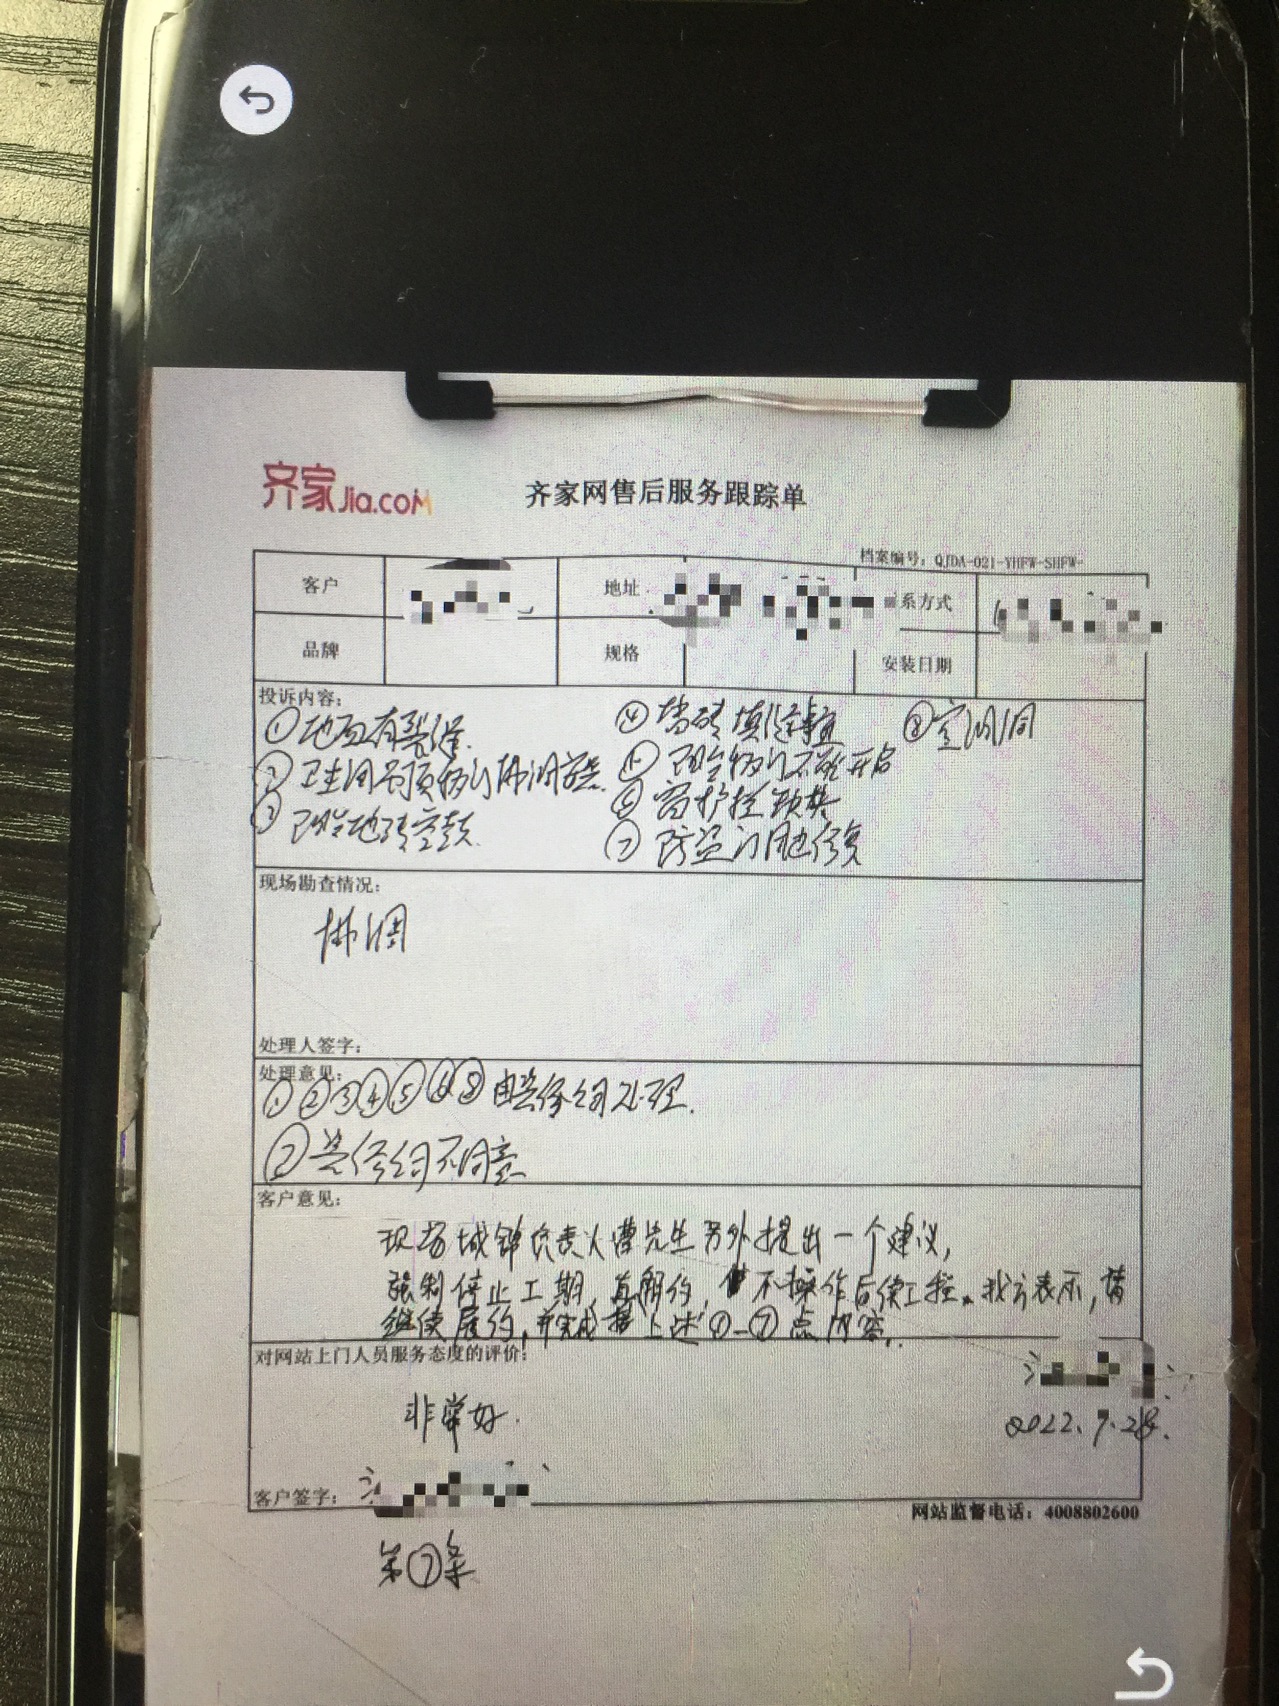 齐家Jia.com
齐家网售后服务跟踪单
档案编号：QJDA-021-YHFW-SHFW-
客户
地址
系方式
品牌
规格
安装日期
投诉内容：
①地面有裂缝.
②卫生间吊顶
③阳台地砖空鼓.
④墙砖填缝
⑤阳台移门不能开启
⑥窗护栏缺损
⑦防盗门修复
⑧空调洞
现场勘查情况：
协调
处理人签字：
处理意见：
①②③④⑤⑥⑧由装修公司处理.
⑦装修公司不同意
客户意见：
现场城锦负责人曹先生另外提出一个建议，
强制停止工期，解约，不操作后续工程。我方表示，请
继续履约，并完成上述①-⑦点内容.
对网站上门人员服务态度的评价：
非常好.
2022.7.28.
客户签字：
网站监督电话：4008802600
第⑦条